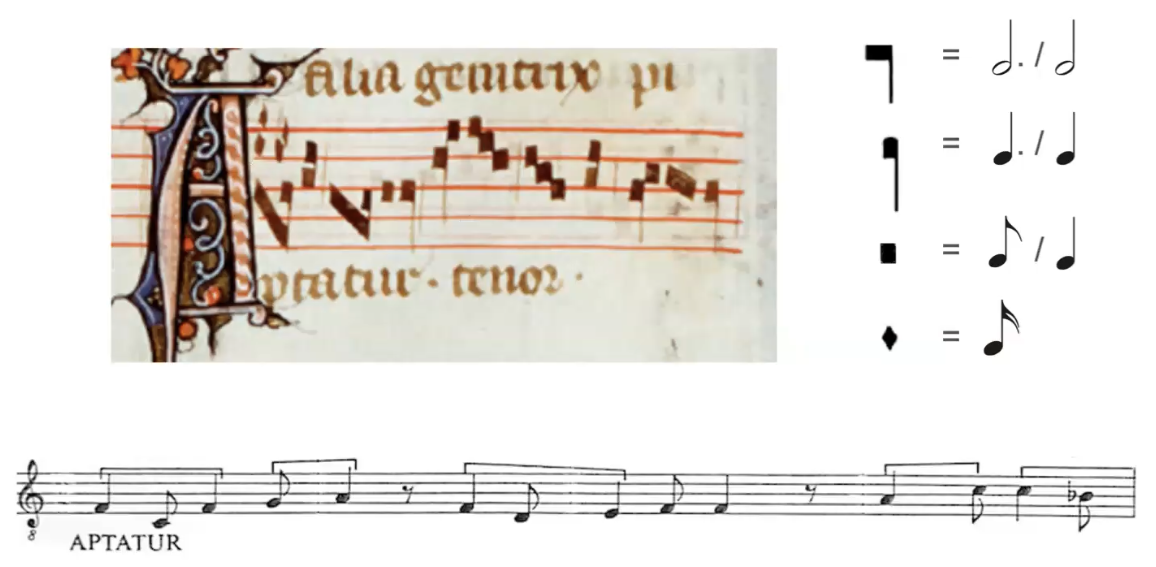 genitrix pi
Aptatur · tenor ·
8
APTATUR